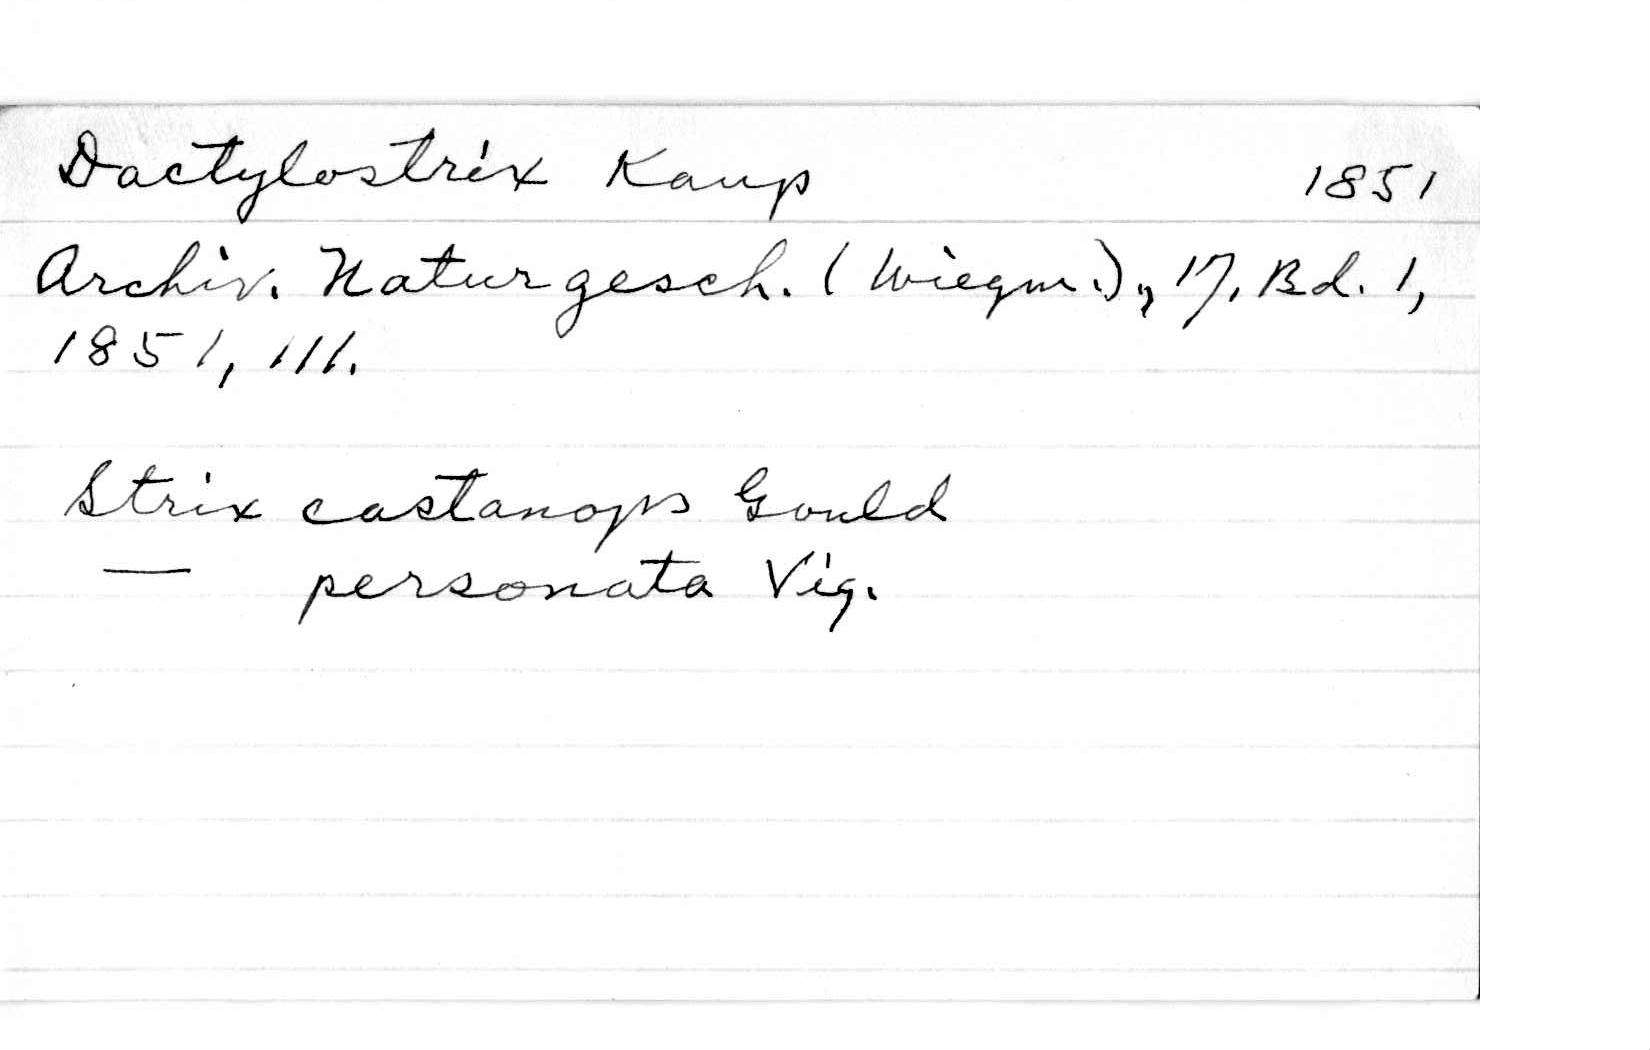 Dactylostrix Kaup 1851
Archiv. Naturgesch. (Wiegm.), 17, Bd. 1,
1851, 111.
Strix castanops Gould
— personata Vig.